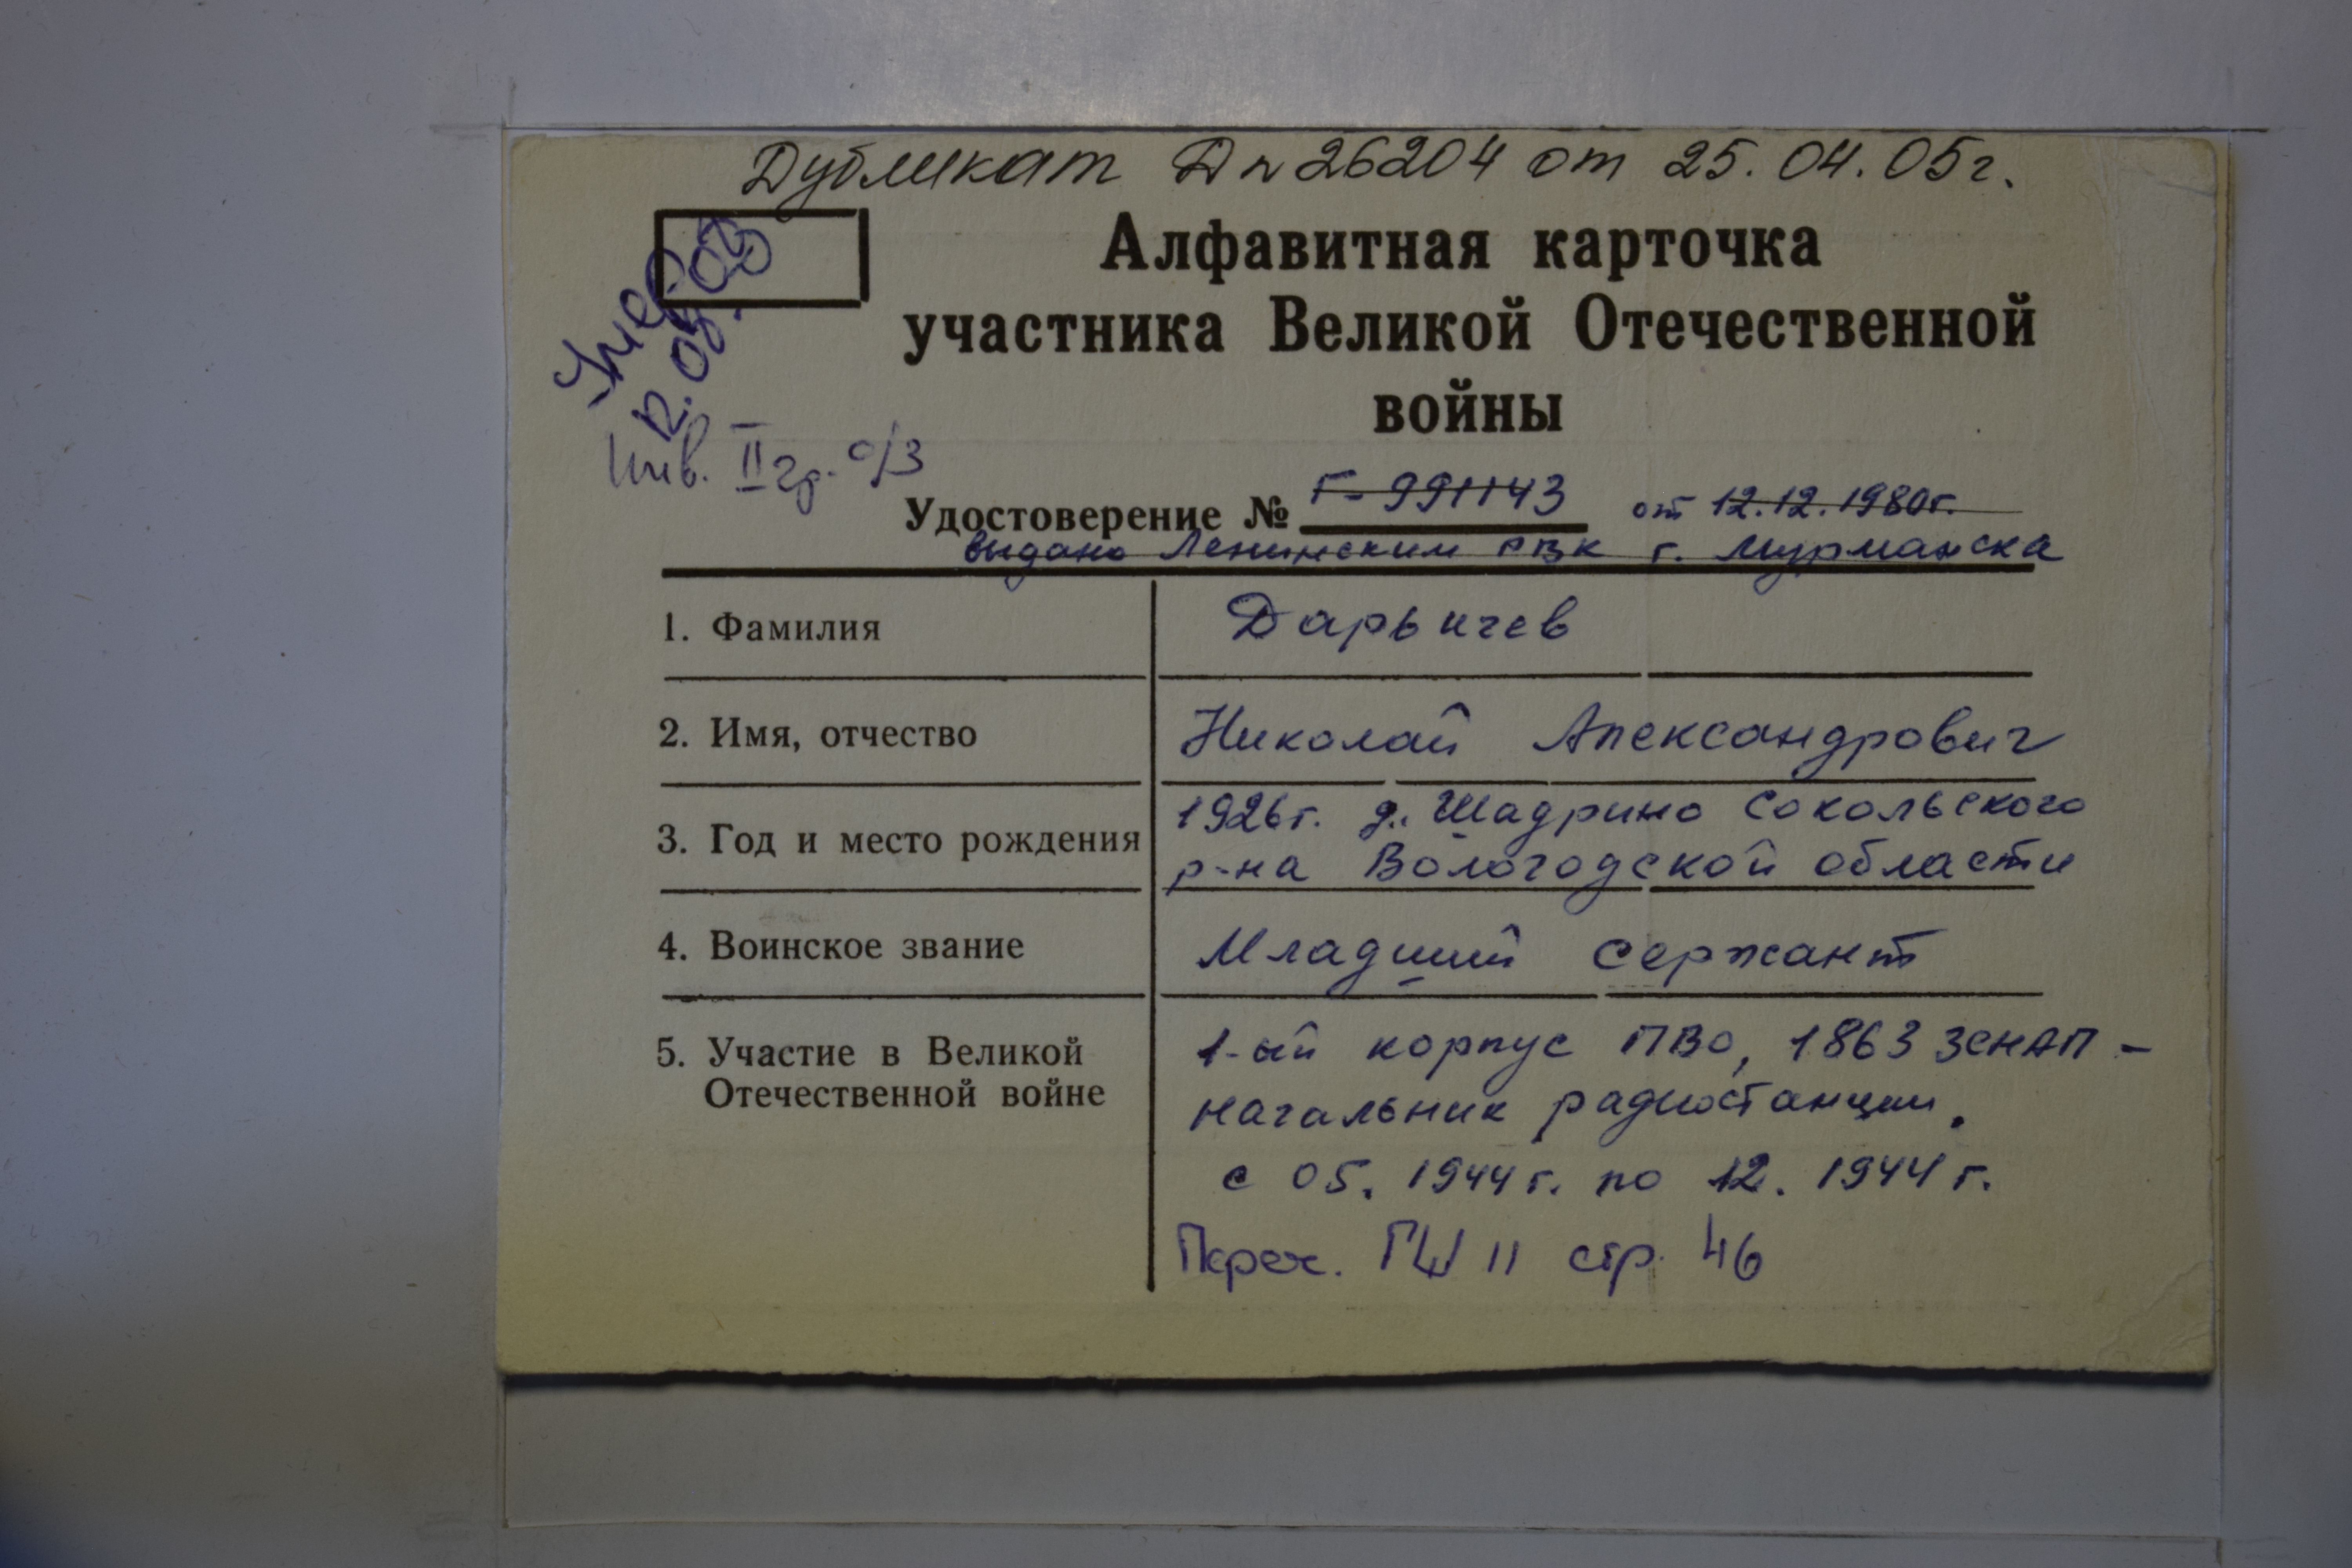 Дубликат Дп 26204 от 25.04.05г.
Алфавитная карточка
участника Великой Отечественной
войны
Умер
Инв. II гр. о/з
Удостоверение № Г-991143 от 12.12.1980г.
выдано Ленинским РВК г. Мурманска
1. Фамилия Дарьичев
2. Имя, отчество Николай Александрович
3. Год и место рождения 1926г. д. Шадрино Сокольского
р-на Вологодской области
4. Воинское звание Младший сержант
5. Участие в Великой Отечественной войне 1-ый корпус ПВО, 1863 ЗЕНАП -
начальник радиостанции.
с 05. 1944 г. по 12. 1944 г.
Переч. ГШ 11 стр. 46